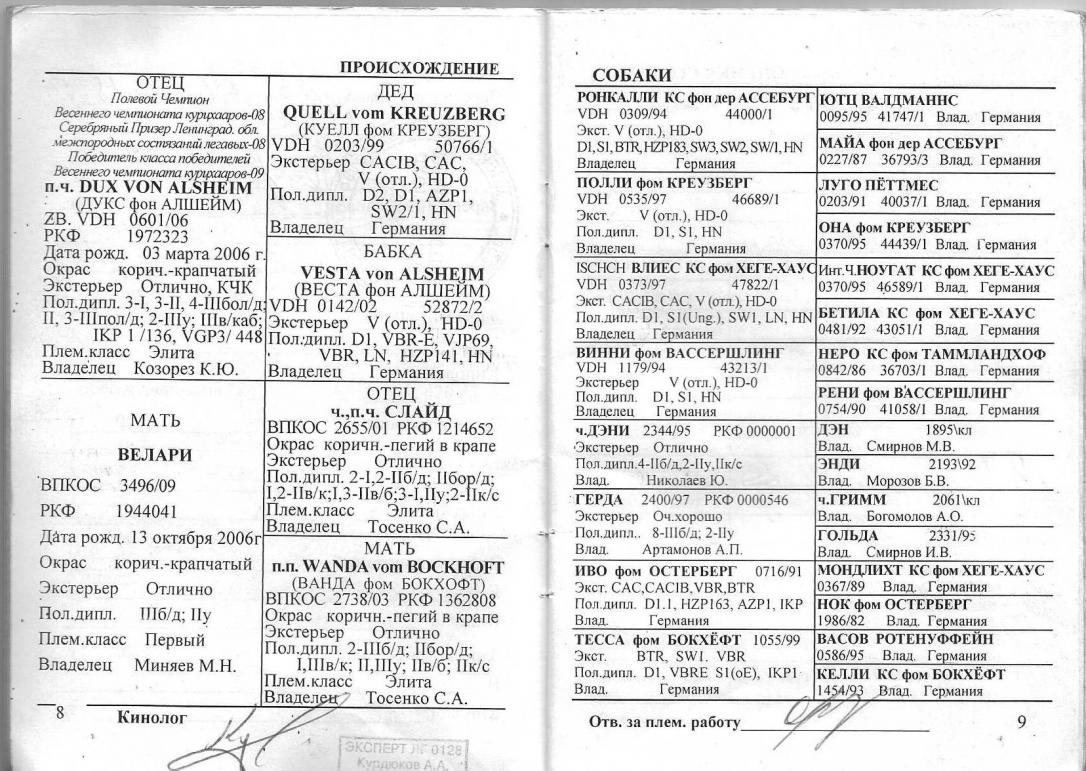 ПРОИСХОЖДЕНИЕ
ОТЕЦ
Полевой Чемпион
Весеннего чемпионата курцхааров-08
Серебряный Призер Ленинград. обл.
межпородных состязаний легавых-08
Победитель класса победителей
Весеннего чемпионата курцхааров-09
п.ч. DUX VON ALSHEIM
(ДУКС фон АЛШЕЙМ)
ZB. VDH 0601/06
РКФ 1972323
Дата рожд. 03 марта 2006 г.
Окрас корич.-крапчатый
Экстерьер Отлично, КЧК
Пол.дипл. 3-I, 3-II, 4-IIIбол/д;
II, 3-IIIпол/д; 2-IIIу; IIIв/каб;
IKP 1 /136, VGP3/ 448
Плем.класс Элита
Владелец Козорез К.Ю.
МАТЬ
ВЕЛАРИ
ВПКОС 3496/09
РКФ 1944041
Дата рожд. 13 октября 2006г
Окрас корич.-крапчатый
Экстерьер Отлично
Пол.дипл. IIIб/д; IIу
Плем.класс Первый
Владелец Миняев М.Н.
ДЕД
QUELL vom KREUZBERG
(КУЕЛЛ фом КРЕУЗБЕРГ)
VDH 0203/99 50766/1
Экстерьер CACIB, CAC,
V (отл.), HD-0
Пол.дипл. D2, D1, AZP1,
SW2/1, HN
Владелец Германия
БАБКА
VESTA von ALSHEIM
(ВЕСТА фон АЛШЕЙМ)
VDH 0142/02 52872/2
Экстерьер V (отл.), HD-0
Пол.дипл. D1, VBR-E, VJP69,
VBR, LN, HZP141, HN
Владелец Германия
ОТЕЦ
ч.,п.ч. СЛАЙД
ВПКОС 2655/01 РКФ 1214652
Окрас коричн.-пегий в крапе
Экстерьер Отлично
Пол.дипл. 2-I,2-IIб/д; IIбор/д;
I,2-IIв/к;I,3-IIв/б;3-I,IIу;2-IIк/с
Плем.класс Элита
Владелец Тосенко С.А.
МАТЬ
п.п. WANDA vom BOCKHOFT
(ВАНДА фом БОКХОФТ)
ВПКОС 2738/03 РКФ 1362808
Окрас коричн.-пегий в крапе
Экстерьер Отлично
Пол.дипл. 2-IIIб/д; IIбор/д;
I,IIIв/к; II,IIIу; IIв/б; IIк/с
Плем.класс Элита
Владелец Тосенко С.А.
8 Кинолог
ЭКСПЕРТ ЛГ 0128
Курдюков А.А.
СОБАКИ
РОНКАЛЛИ КС фон дер АССЕБУРГ
VDH 0309/94 44000/1
Экст. V (отл.), HD-0
D1, S1, BTR, HZP183, SW3, SW2, SW/1, HN
Владелец Германия
ПОЛЛИ фом КРЕУЗБЕРГ
VDH 0535/97 46689/1
Экст. V (отл.), HD-0
Пол.дипл. D1, S1, HN
Владелец Германия
ISCHCH ВЛИЕС КС фом ХЕГЕ-ХАУС
VDH 0373/97 47822/1
Экст. CACIB, CAC, V (отл.), HD-0
Пол.дипл. D1, S1(Ung.), SW1, LN, HN
Владелец Германия
ВИННИ фом ВАССЕРШЛИНГ
VDH 1179/94 43213/1
Экстерьер V (отл.), HD-0
Пол.дипл. D1, S1, HN
Владелец Германия
ч.ДЭНИ 2344/95 РКФ 0000001
Экстерьер Отлично
Пол.дипл.4-IIб/д,2-IIу,IIк/с
Влад. Николаев Ю.
ГЕРДА 2400/97 РКФ 0000546
Экстерьер Оч.хорошо
Пол.дипл.. 8-IIIб/д; 2-IIу
Влад. Артамонов А.П.
ИВО фом ОСТЕРБЕРГ 0716/91
Экст. CAC,CACIB,VBR,BTR
Пол.дипл. D1.1, HZP163, AZP1, IKP
Влад. Германия
ТЕССА фом БОКХЁФТ 1055/99
Экст. BTR, SW1. VBR
Пол.дипл. D1, VBRE S1(oE), IKP1
Влад. Германия
ЮТЦ ВАЛДМАННС
0095/95 41747/1 Влад. Германия
МАЙА фон дер АССЕБУРГ
0227/87 36793/3 Влад. Германия
ЛУГО ПЁТТМЕС
0203/91 40037/1 Влад. Германия
ОНА фом КРЕУЗБЕРГ
0370/95 44439/1 Влад. Германия
Инт.Ч.НОУГАТ КС фом ХЕГЕ-ХАУС
0370/95 46589/1 Влад. Германия
БЕТИЛА КС фом ХЕГЕ-ХАУС
0481/92 43051/1 Влад. Германия
НЕРО КС фом ТАММЛАНДХОФ
0842/86 36703/1 Влад. Германия
РЕНИ фом ВАССЕРШЛИНГ
0754/90 41058/1 Влад. Германия
ДЭН 1895\кл
Влад. Смирнов М.В.
ЭНДИ 2193\92
Влад. Морозов Б.В.
ч.ГРИММ 2061\кл
Влад. Богомолов А.О.
ГОЛЬДА 2331/95
Влад. Смирнов И.В.
МОНДЛИХТ КС фом ХЕГЕ-ХАУС
0367/89 Влад. Германия
НОК фом ОСТЕРБЕРГ
1986/82 Влад. Германия
ВАСОВ РОТЕНУФФЕЙН
0586/95 Влад. Германия
КЕЛЛИ КС фом БОКХЁФТ
1454/93 Влад. Германия
Отв. за плем. работу 9